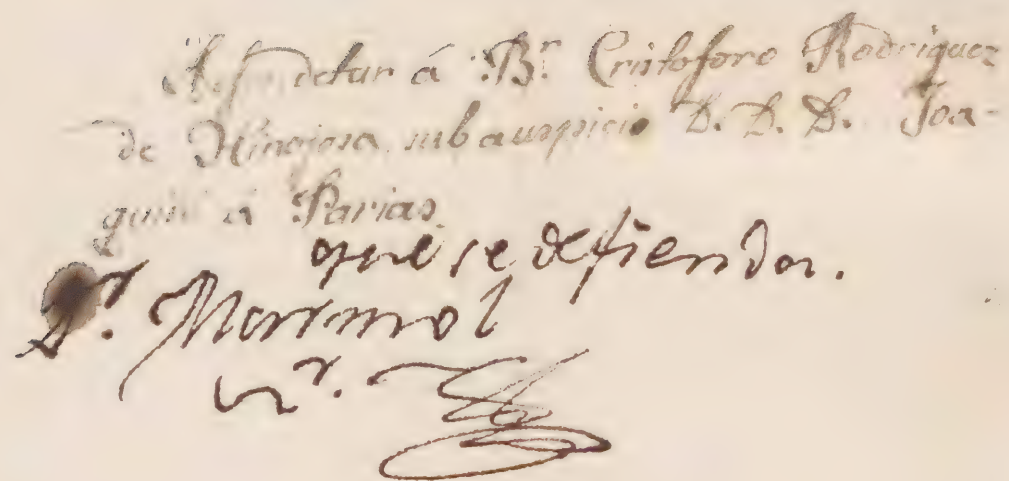 detur à B.r Cristoforo Rodriguez
de Hinojosa sub auspicio D. D. D. Joa-
quin à Parias
que se defiendan.
D.r Marmol